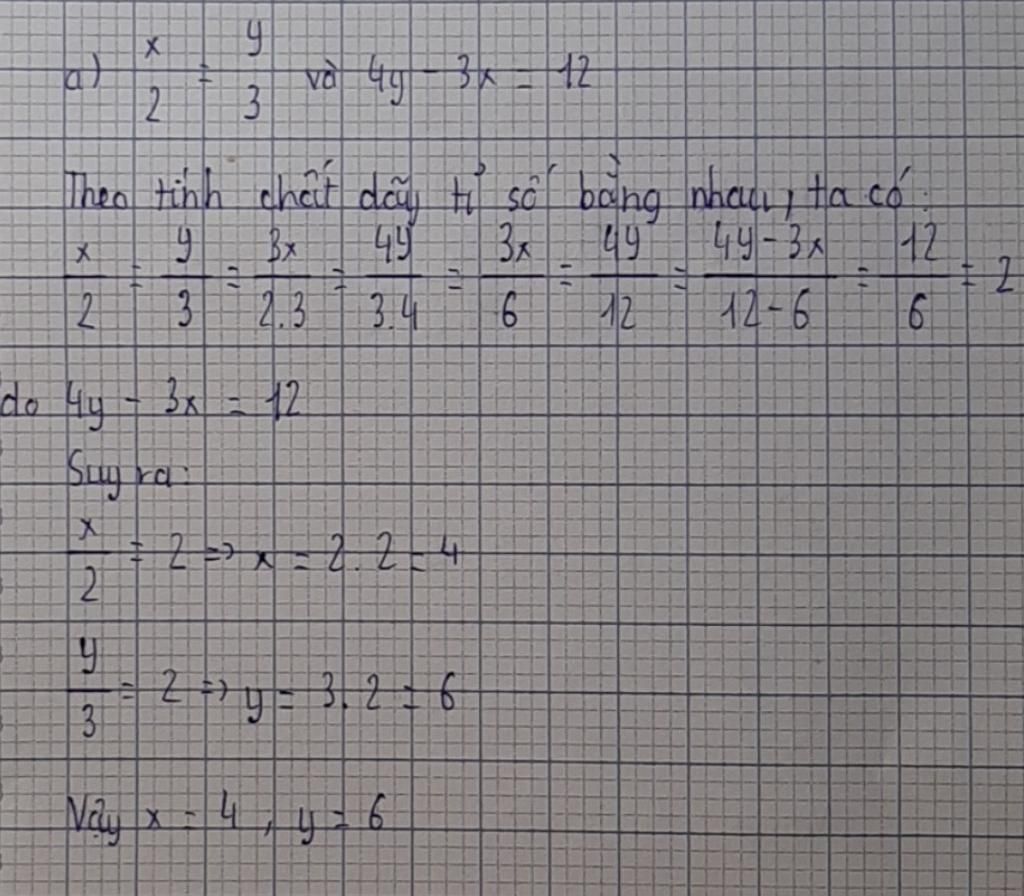 a) x/2 = y/3 và 4y - 3x = 12
Theo tính chất dãy tỉ số bằng nhau, ta có:
x/2 = y/3 = 3x/2.3 = 4y/3.4 = 3x/6 = 4y/12 = 4y-3x/12-6 = 12/6 = 2
do 4y - 3x = 12
Suy ra:
x/2 = 2 => x = 2.2 = 4
y/3 = 2 => y = 3.2 = 6
Vậy x = 4, y = 6